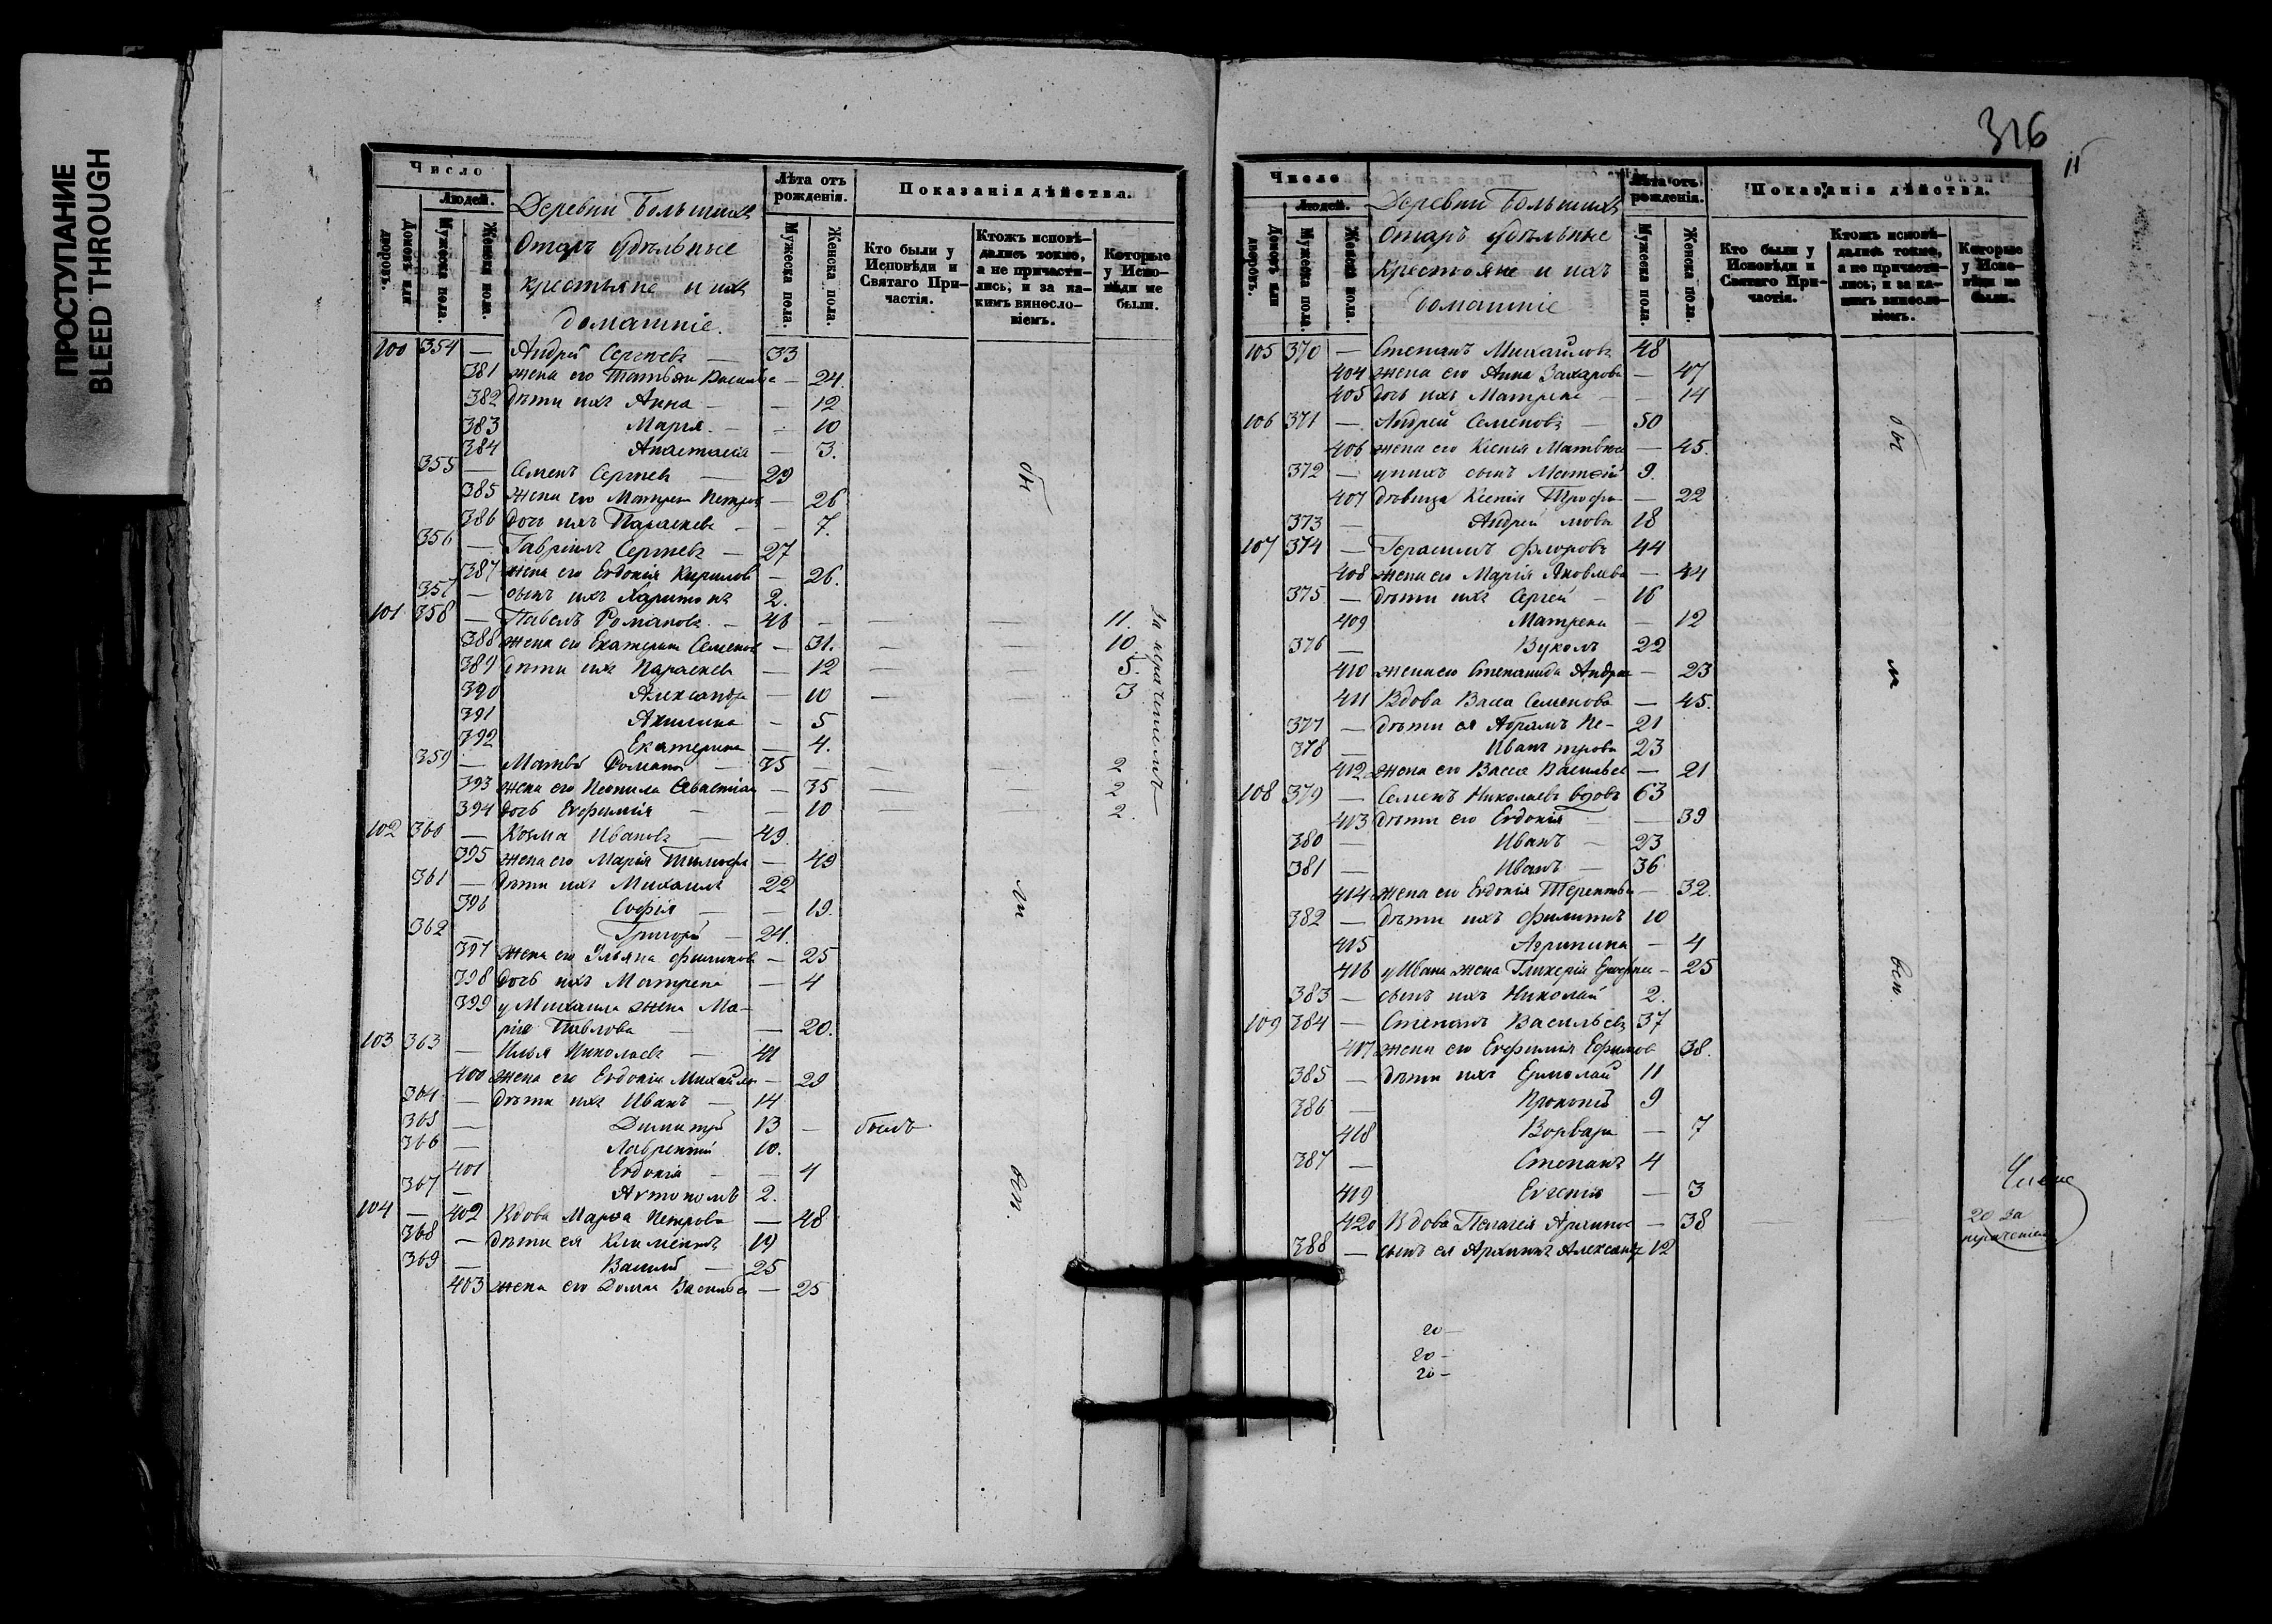 ПРОСТУПАНИЕ
BLEED THROUGH
Число
Людей.
Домовъ или дворовъ.
Мужеска пола.
Женска пола.
Деревни Большихъ
Отаръ удѣльные
крестьяне и ихъ
домашніе.
Лѣта отъ рожденія.
Мужеска пола.
Женска пола.
Показанія дѣйства.
Кто были у Исповѣди и Святаго Причастія.
Ктожъ исповѣдались токмо, а не причастились; и за какимъ винословіемъ.
Которые у Исповѣди не были.
100 354 — Андрей Сергѣевъ — 33
381 жена его Татьяна Василье — 24.
382 дѣти ихъ Анна — — 12
383 Марія. — — 10
384 Анастасія — 3.
355 — Семенъ Сергѣевъ — 29
385 жена его Матрена Петров — 26
386 дочь ихъ Параскева — — 7.
356 — Гавріилъ Сергѣевъ — 27
387 жена его Евдокія Кирилов — 26.
357 — сынъ ихъ Харитонъ 2.
101 358 — Павелъ Романовъ — 46 — — — 11.
388 жена его Екатерина Семенов — 31. — — 10.
389 дѣти ихъ Параскева — 12 — — 5.
390 Александра — 10 — — 3
391 Акилина — 5
392 Екатерина — 4.
359 — Матвѣй Романов — 35 — — — 2
393 жена его Неонила Севастіан — 35 — — 2
394 дочь Евфимія — — 10 — — 2.
За нерачениемъ
102 360 — Козма Ивановъ — 49.
395 жена его Марія Тимоѳе — 49
361 — дѣти ихъ Михаилъ 22
396 Софія — — 19.
362 — Григорій — 24.
397 жена его Ульяна Филипова — 25
398 дочь ихъ Матрена — 4
399 у Михаила жена Ма-
рія Павлова — — 20.
103 363 — Илья Николаевъ — 41
400 жена его Евдокія Михайло — 29
364 — дѣти ихъ Иванъ — 14
365 — Димитрій 13 — былъ
366 — Лаврентій 10.
401 Евдокія — — 4
367 — Автономъ 2.
104 — 402 Вдова Марѳа Петрова — 48
368 — дѣти ея Климентъ 19
369 — Василій — 25
403 жена его Домна Василье — 25
316
Число
Людей.
Домовъ или дворовъ.
Мужеска пола.
Женска пола.
Деревни Большихъ
Отаръ удѣльные
Крестьяне и ихъ
домашніе
Лѣта отъ рожденія.
Мужеска пола.
Женска пола.
Показанія дѣйства.
Кто были у Исповѣди и Святаго Причастія.
Ктожъ исповѣдались токмо, а не причастились; и за какимъ винословіемъ.
Которые у Исповѣди не были.
105 370 — Степанъ Михайловъ 48
404 жена его Анна Захарова — 47
405 дочь ихъ Матрена — — 14
106 371 — Андрей Семеновъ — 50
406 жена его Ксенія Матвѣева — 45.
372 — у нихъ сынъ Матѳей 9.
407 дѣвица Ксенія Троѳи- — 22
373 — Андрей мовы 18
107 374 — Герасимъ Флоровъ 44
408 жена его Марія Яковлева — 44
375 — дѣти ихъ Сергей — 16
409 Матрена — 12
376 — Вуколъ 22
410 жена его Степанида Андре — 23
411 Вдова Васса Семенова — 45.
377 — дѣти ея Абрамъ Пе- 21
378 — Иванъ тровы 23
412. жена его Васса Василье — 21
108 379 — Семенъ Николаевъ вдовъ 63
413 дѣти его Евдокія — — 39
380 — Иванъ — 23
381 — Иванъ — 36
414 жена его Евдокія Терентье — 32.
382 — дѣти ихъ Филиппъ 10
415 Агрипина — 4
416 у Ивана жена Гликерія Ероѳее — 25
383 — сынъ ихъ Николай 2.
109 384 — Степанъ Васильевъ 37
417 жена его Евфимія Ефимов 38.
385 — дѣти ихъ Ермолай 11
386 — Прокопій 9
418 Варвара — 7
387 — Степанъ 4
419 Евгенія — 3
420 Вдова Пелагея Архипов — 38
388 — сынъ ея Архипъ Александр 12
20 за
нерачением
20 —
20 —
20 —